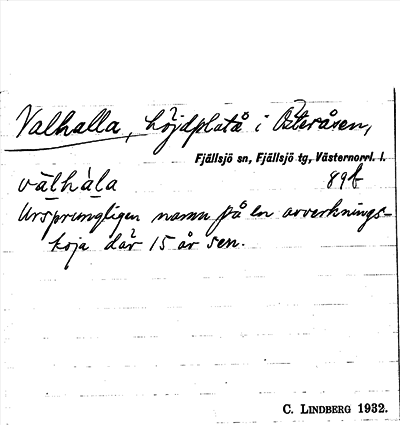 Valhalla, höjdplatå i Österåsen,
Fjällsjö sn, Fjällsjö tg, Västernorrl. l.
vàlhàla 89b
Ursprungligen namn på en avverknings-
koja där 15 år sen.
C. LINDBERG 1932.